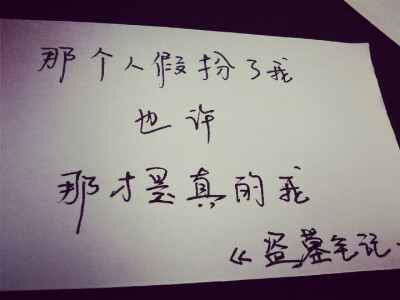 那个人假扮了我
也许
那才是真的我
《盗墓笔记.